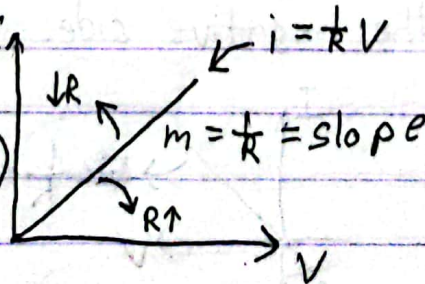 i = 1/R V
↓R
m = 1/R = slope
R↑
V